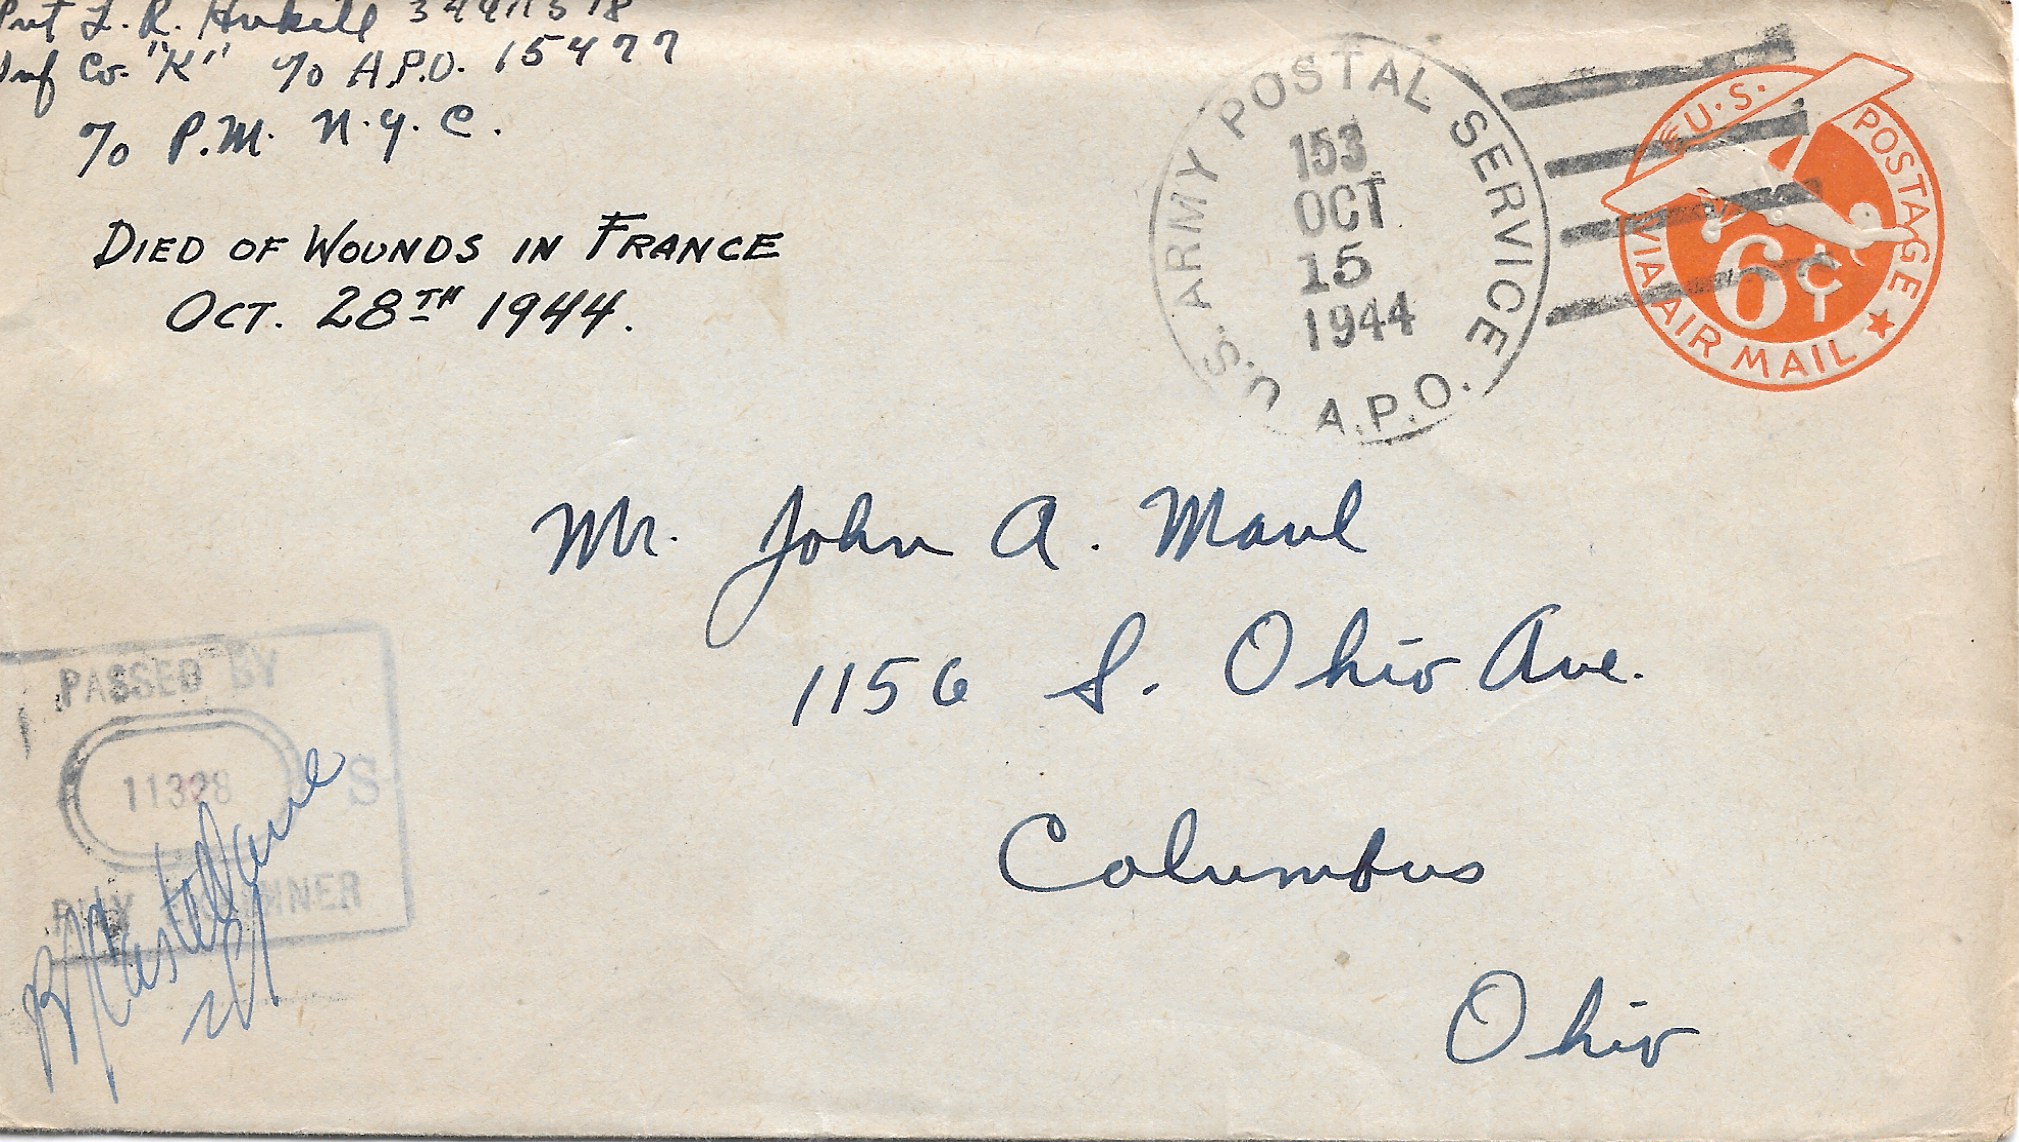 Pvt L. R. Hukill
Inf Co. "K" c/o A.P.O. 15477
c/o P.M. N.Y.C.
DIED OF WOUNDS IN FRANCE
OCT. 28TH 1944.
U.S. ARMY POSTAL SERVICE
153
OCT
15
1944
A.P.O.
U.S. POSTAGE
6¢
VIA AIR MAIL
Mr. John A. Maul
1156 S. Ohio Ave.
Columbus
Ohio
PASSED BY
S
ARMY EXAMINER